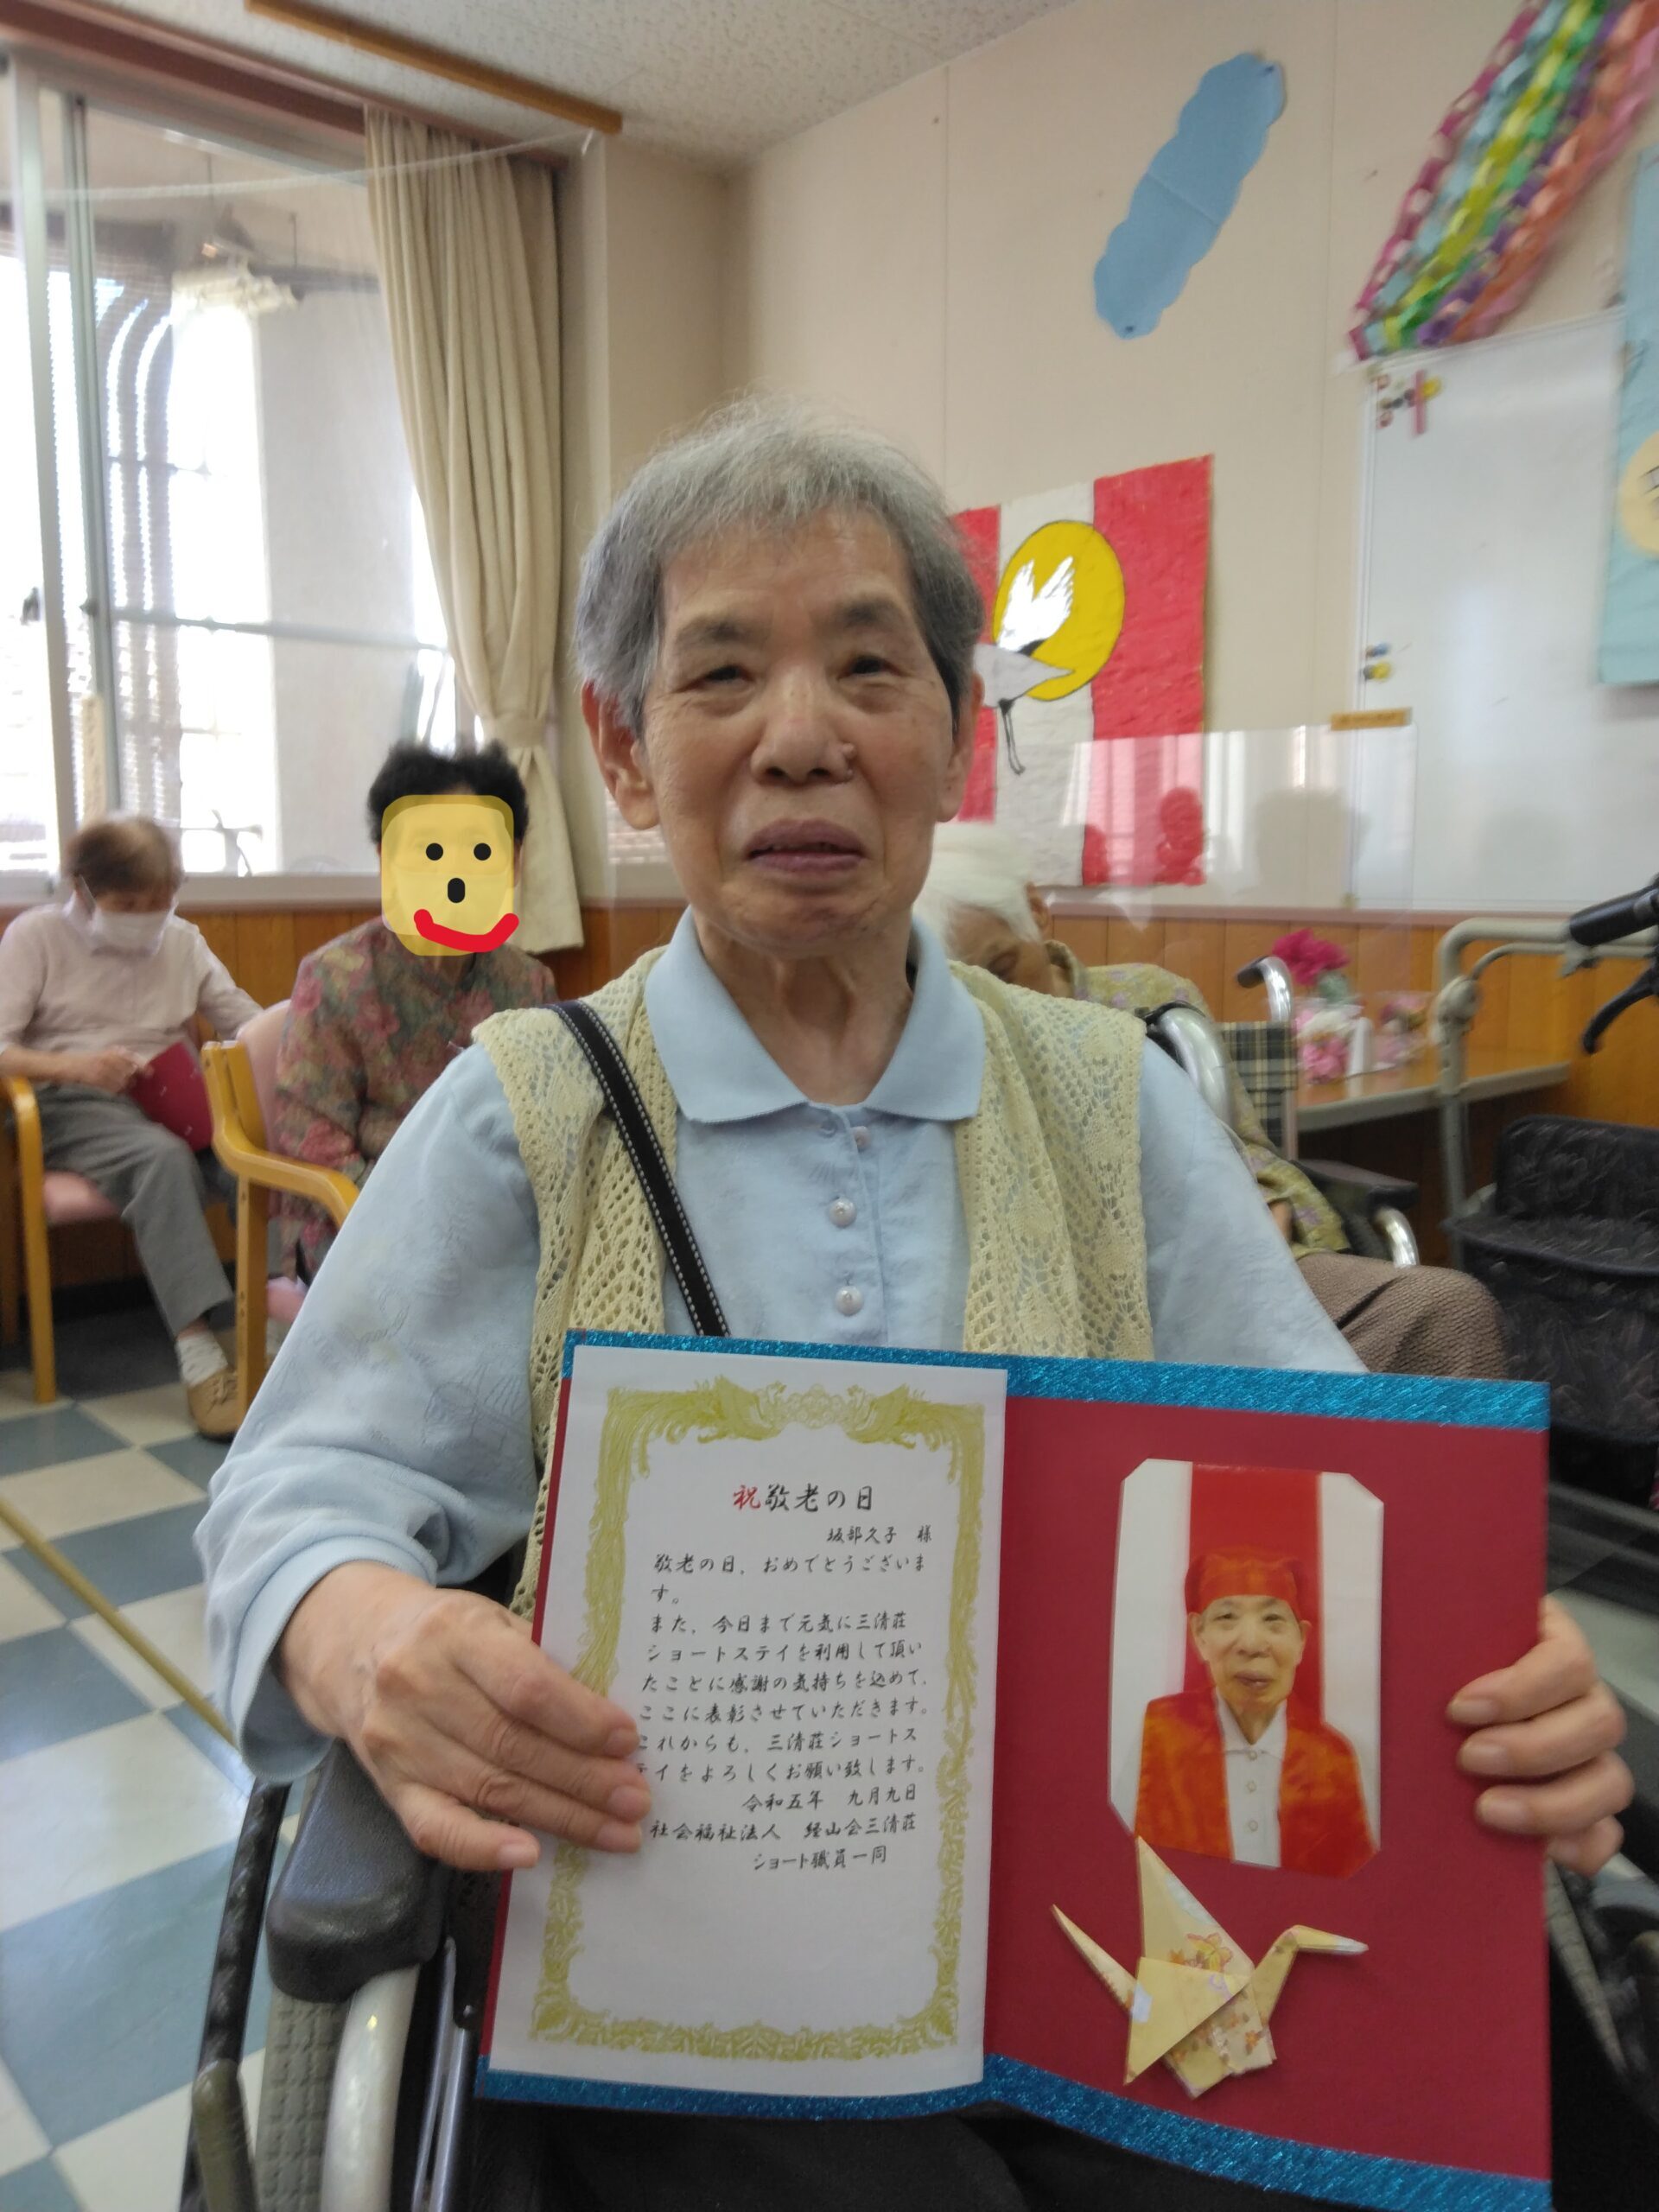 祝敬老の日
坂部久子 様
敬老の日、おめでとうございま
す。
また、今日まで元気に三清荘
ショートステイを利用して頂い
たことに感謝の気持ちを込めて、
ここに表彰させていただきます。
これからも、三清荘ショートス
テイをよろしくお願い致します。
令和五年 九月九日
社会福祉法人 経山会三清荘
ショート職員一同